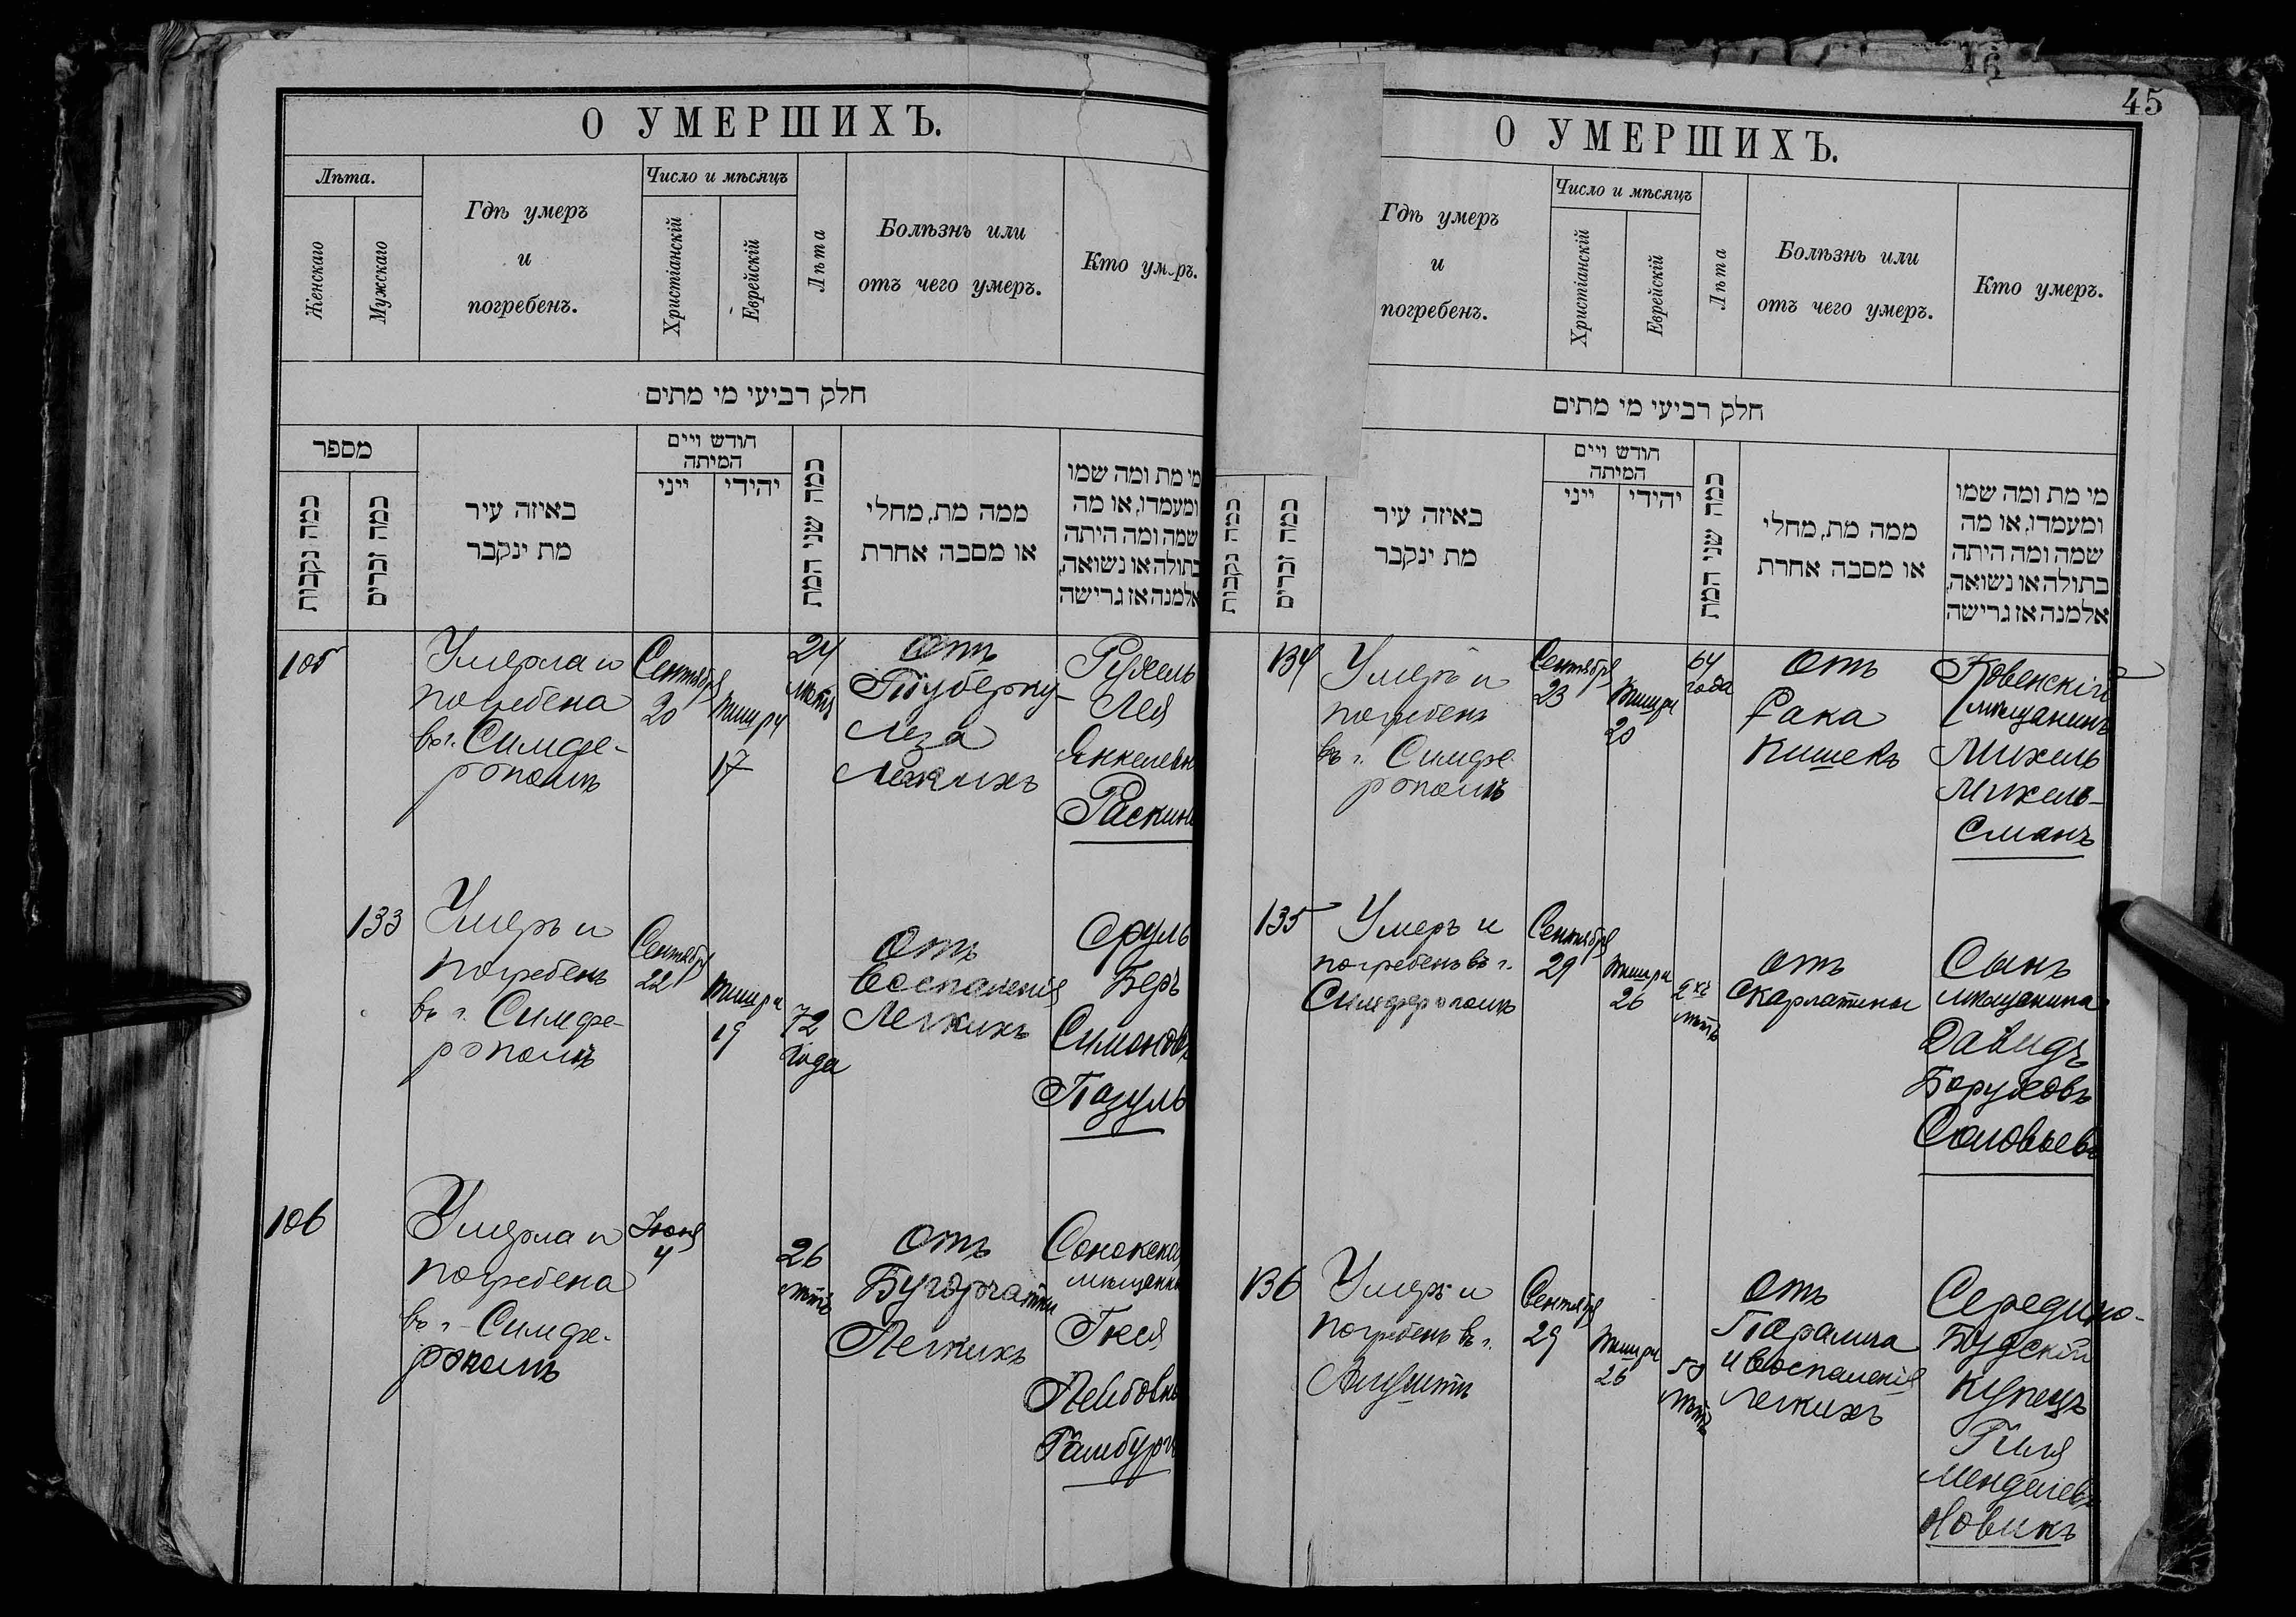 О УМЕРШИХЪ.
Лѣта.
Женскаго
Мужскаго
Гдѣ умеръ
и
погребенъ.
Число и мѣсяцъ
Христіанскій
Еврейскій
Лѣта
Болѣзнь или
отъ чего умеръ.
Кто умеръ.
חלק רביעי מי מתים
מספר
כמה נקבות
כמה זכרים
באיזה עיר
מת ינקבר
חודש ויים
המיתה
ייני
יהידי
כמה שני המת
ממה מת, מחלי
או מסבה אחרת
מי מת ומה שמו
ומעמדו, או מה
שמה ומה היתה
בתולה או נשואה,
אלמנה אז גרישה
105
Умерла и
погребена
въ г. Симфе-
рополѣ
Сентября
20
Тишри
17
24
лѣтъ
Отъ
Туберку-
леза
Легкихъ
Рухель
Лея
Янкелевн
Раскин
133
Умеръ и
погребенъ
въ г. Симфе-
рополѣ
Сентября
22
Тишри
19
72
года
Отъ
Воспаленія
Легкихъ
Сруль
Беръ
Симоновъ
Пазуль
106
Умерла и
погребена
въ г. Симфе-
рополѣ
Іюня
4
26
лѣтъ
Отъ
Бугорчатки
Легкихъ
мѣщанк
Лейбовн
Гамбург
45
О УМЕРШИХЪ.
Гдѣ умеръ
и
погребенъ.
Число и мѣсяцъ
Христіанскій
Еврейскій
Лѣта
Болѣзнь или
отъ чего умеръ.
Кто умеръ.
חלק רביעי מי מתים
כמה נקבות
כמה זכרים
באיזה עיר
מת ינקבר
חודש ויים
המיתה
ייני
יהידי
כמה שני המת
ממה מת, מחלי
או מסבה אחרת
מי מת ומה שמו
ומעמדו, או מה
שמה ומה היתה
בתולה או נשואה,
אלמנה אז גרישה
134
Умеръ и
погребенъ
въ г. Симфе-
рополѣ
Сентября
23
Тишри
20
64
года
Отъ
Рака
Кишекъ
Ковенскій
мѣщанинъ
Михель
Михель-
сманъ
135
Умеръ и
погребенъ въ г.
Симферополѣ
Сентября
29
Тишри
26
2хъ
лѣтъ
Отъ
Скарлатины
Сынъ
мѣщанина
Давидъ
Боруховъ
Соловьевъ
136
Умеръ и
погребенъ въ г.
Алуштѣ
Сентября
29
Тишри
26
58
лѣтъ
Отъ
Паралича
и Воспаленія
легкихъ
Середино-
Будскій
купецъ
Гиля
Менделевъ
Новикъ